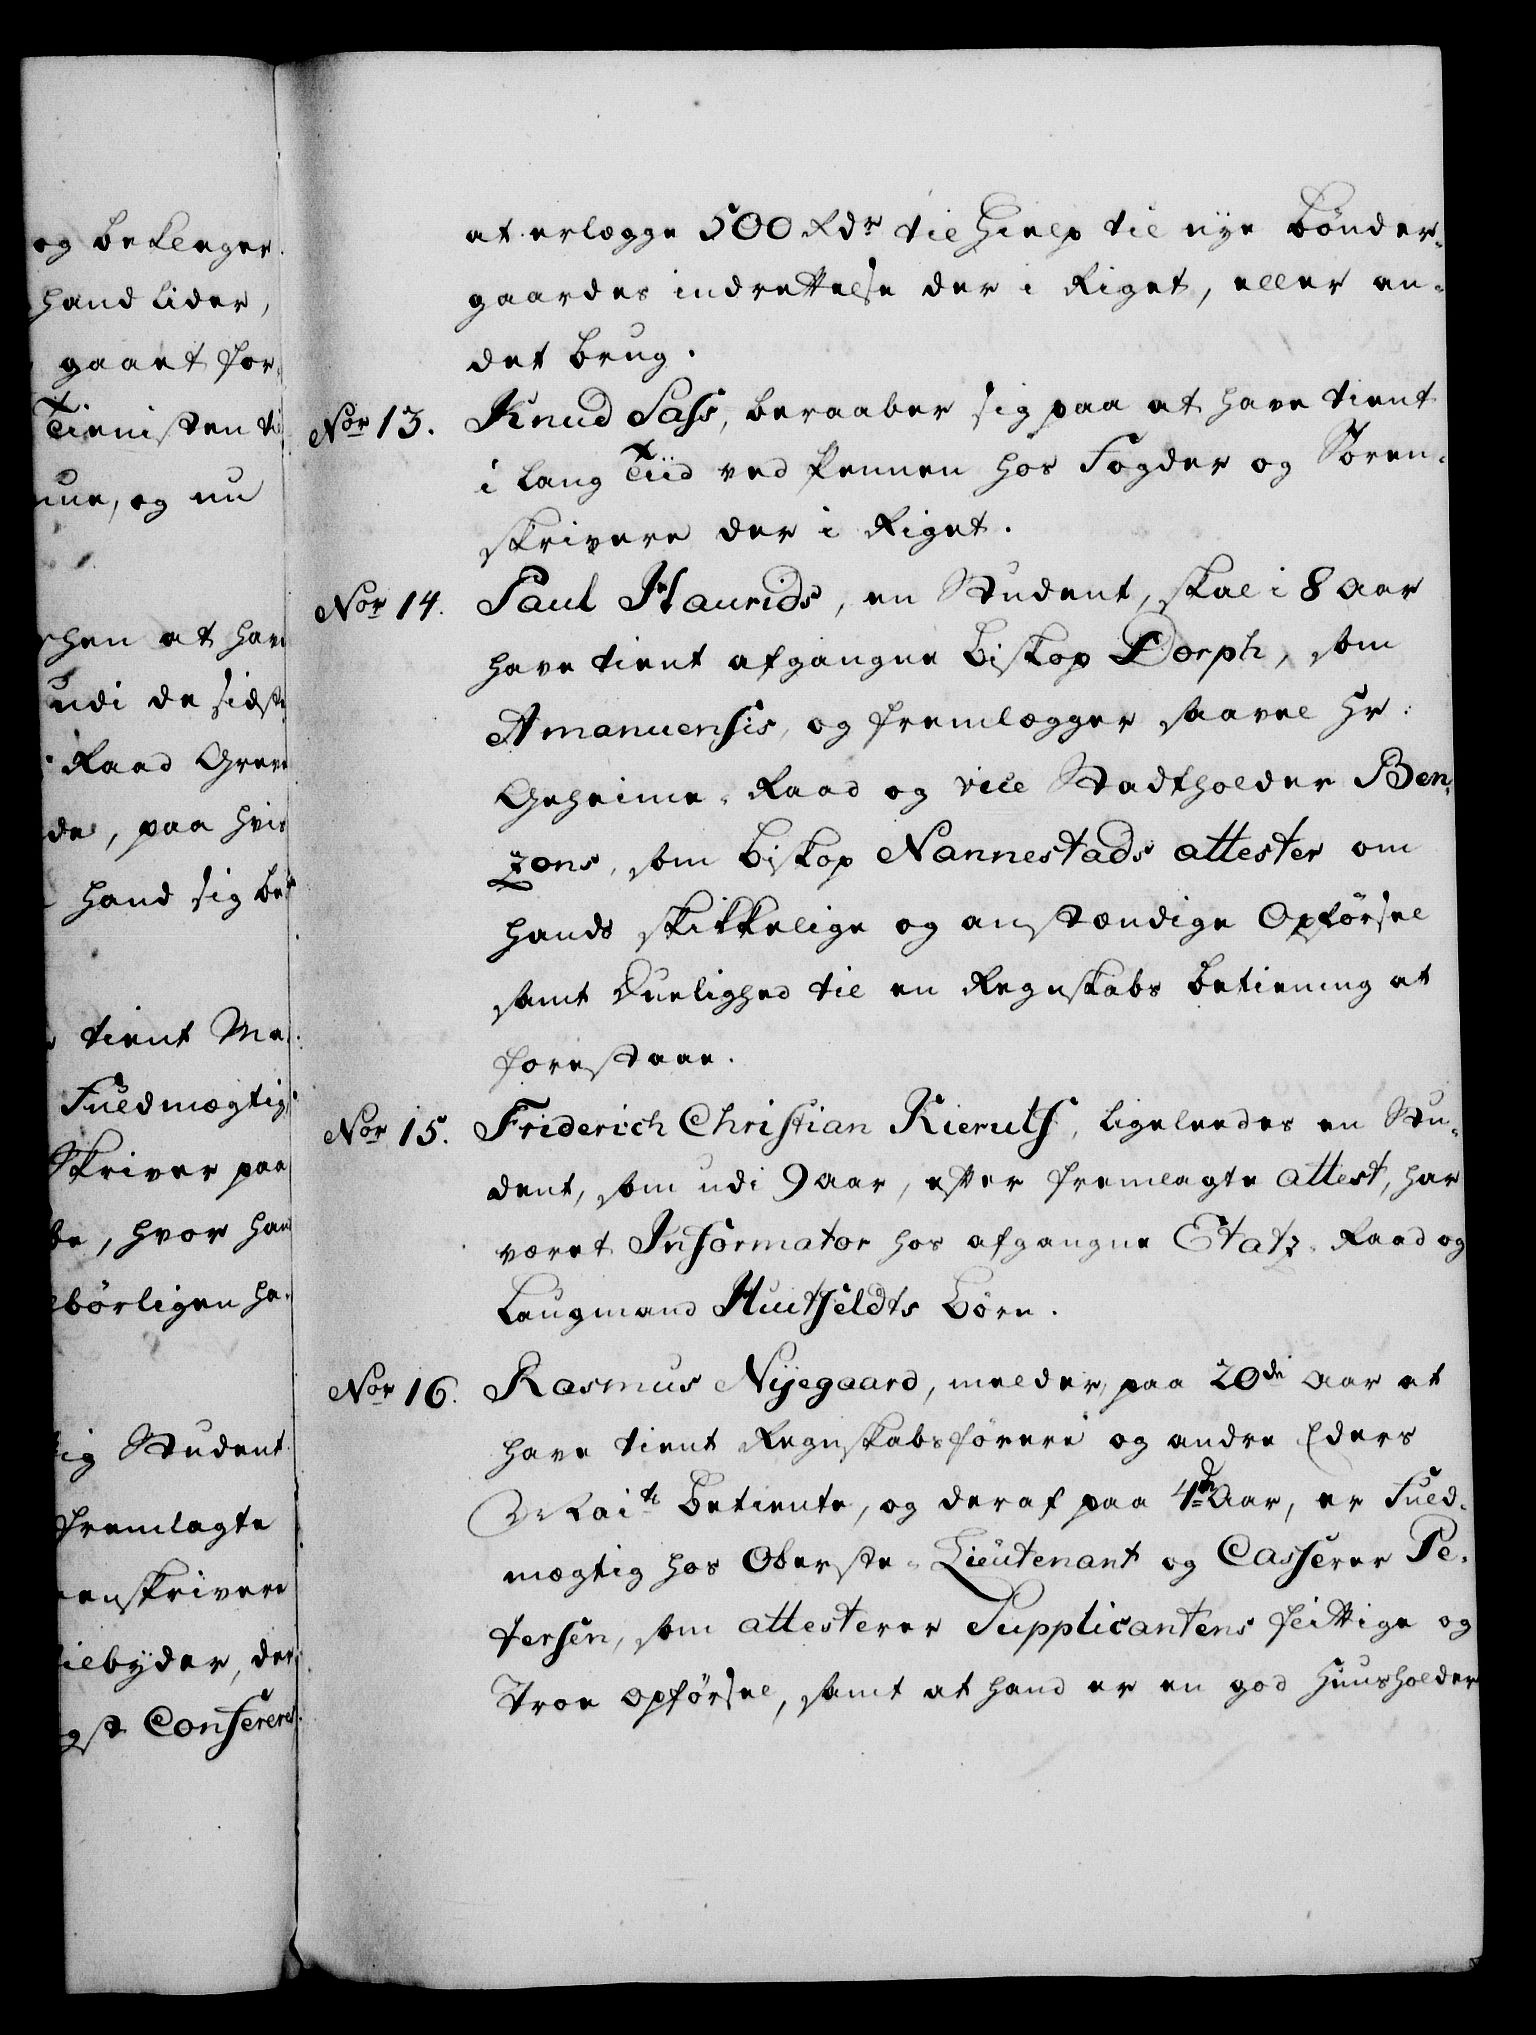 og beklager
hand lider,
gaaet for¬
Tienisten ti
nue, og nu
schen at hav
udi de sidst
Raad Greve
de, paa hvis
hand sig be
tient Ma¬
Fuldmægtig
Skriver paa
be, hvor han
børligen ha¬
ig Student
fremlagte
enskrivere
tilbÿder, der
gst Confereres
at erlægge 500 Rdr til Hielp til nye Bønder¬
gaardes indrettelse der i Riget, eller an¬
det brug.
Nor 13. Knud Sass, beraaber sig paa at have tient
i lang Tiid ved Pennen hos Fogder og Soren¬
skrivere der i Riget.
Nor 14. Paul Haurids, en Student, skal i 8 Aar
have tient afgangne Biskop Dorph, som
Amanuensis, og fremlægger saavel Hr:
Geheime-Raad og vice Stadtholder Ben¬
zons, som Biskop Nannestads attester om
hands skikkelige og anstændige Opførsel
samt Duelighed til en Regnskabs betiening at
forestaae.
Nor 15. Friderich Christian Kierulf, ligeleedes en Stu¬
dent, som udi 9 Aar, efter fremlagte attest, har
været Informator hos afgangne Etatz-Raad og
Laugmand Huitfeldts Børn.
Nor 16. Rasmus Nÿegaard, melder, paa 20de Aar at
have tient Regnskabsførere og andre Eders
Maits Betiente, og deraf paa 4de Aar, er Fuld¬
mægtig hos Oberste-Lieutenant og Casserer Pe¬
tersen, som attesterer Supplicantens flittige og
Troe opførsel, samt at hand er en god Huusholder